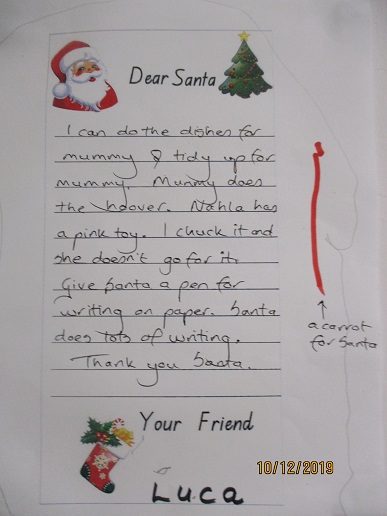 Dear Santa
I can do the dishes for
mummy & tidy up for
mummy. Mummy does
the hoover. Nahla has
a pink toy. I chuck it and
she doesn't go for it.
Give Santa a pen for
writing on paper. Santa
does lots of writing.
Thank you Santa.
a carrot
for Santa
Your Friend
Luca
10/12/2019